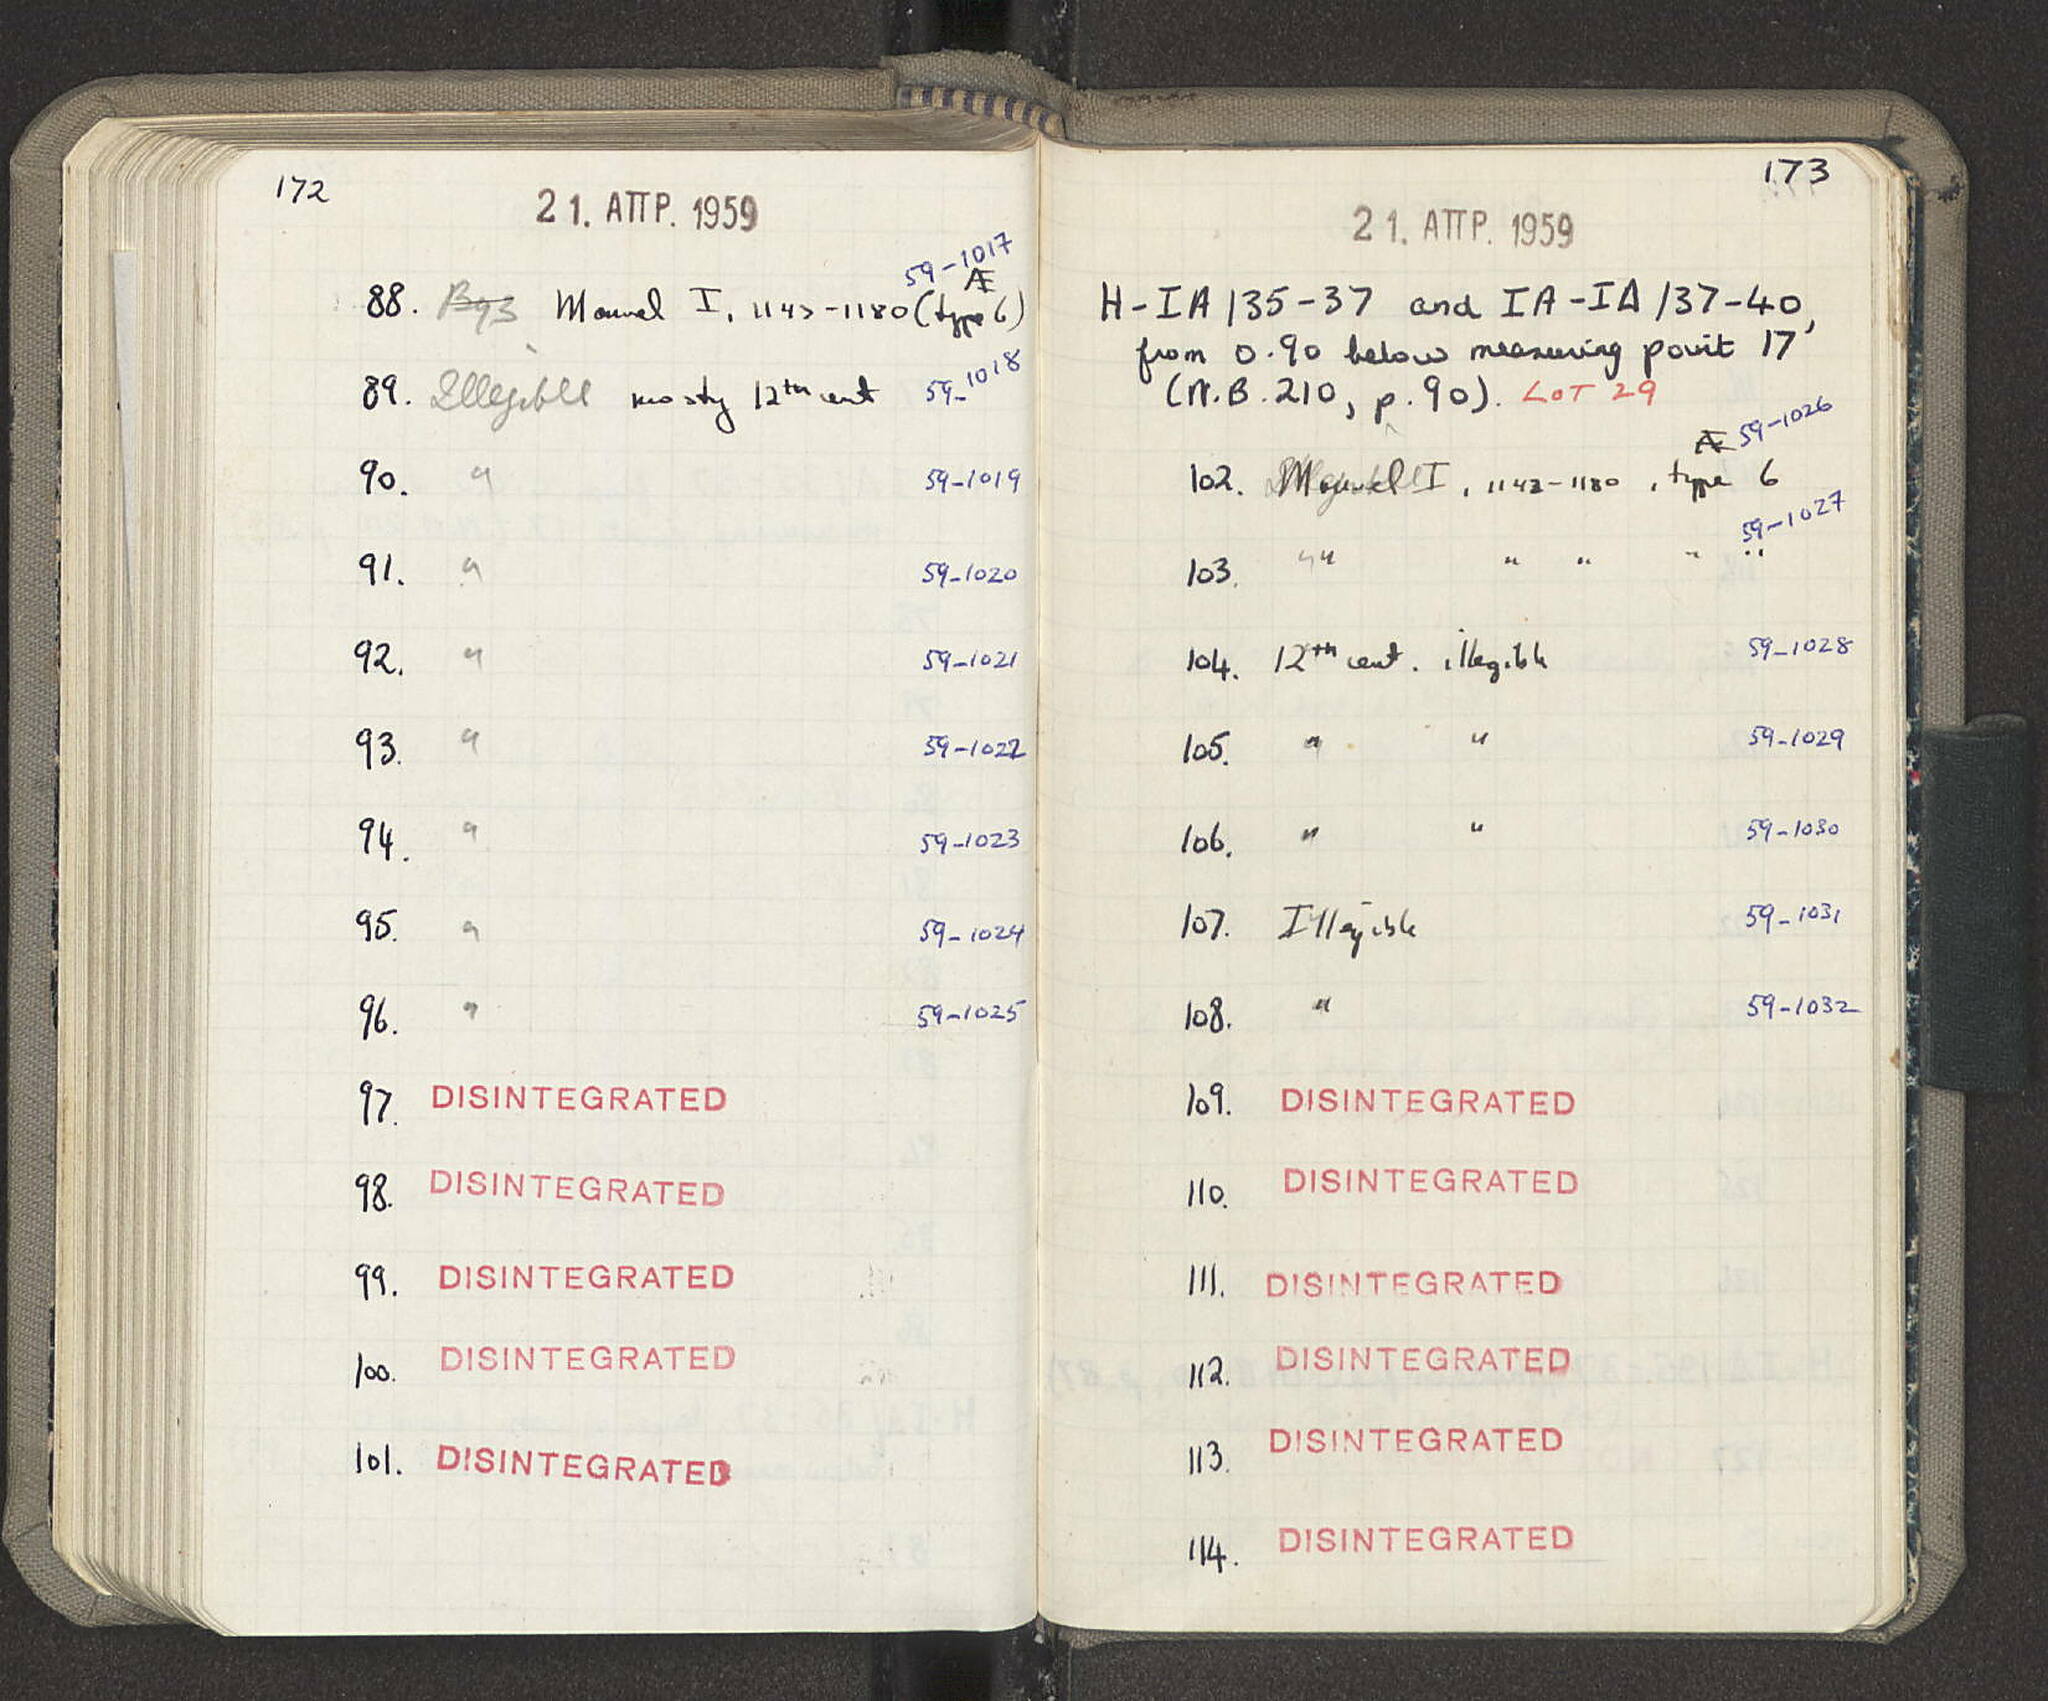 172
21. ΑΠΡ. 1959
59-1017
Æ
88. Byz Manuel I, 1143-1180 (type 6)
89. Illegible mostly 12th cent 59-1018
90. " 59-1019
91. " 59-1020
92. " 59-1021
93. " 59-1022
94. " 59-1023
95. " 59-1024
96. " 59-1025
97. DISINTEGRATED
98. DISINTEGRATED
99. DISINTEGRATED
100. DISINTEGRATED
101. DISINTEGRATED
173
21. ΑΠΡ. 1959
H-IA/35-37 and IA-IΔ/37-40,
from 0.90 below measuring point 17
(N.B. 210, p. 90). LOT 29
Æ 59-1026
102. Manuel I, 1143-1180, type 6
59-1027
103. " " " " "
104. 12th cent. illegible 59-1028
105. " " 59-1029
106. " " 59-1030
107. Illegible 59-1031
108. " 59-1032
109. DISINTEGRATED
110. DISINTEGRATED
111. DISINTEGRATED
112. DISINTEGRATED
113. DISINTEGRATED
114. DISINTEGRATED